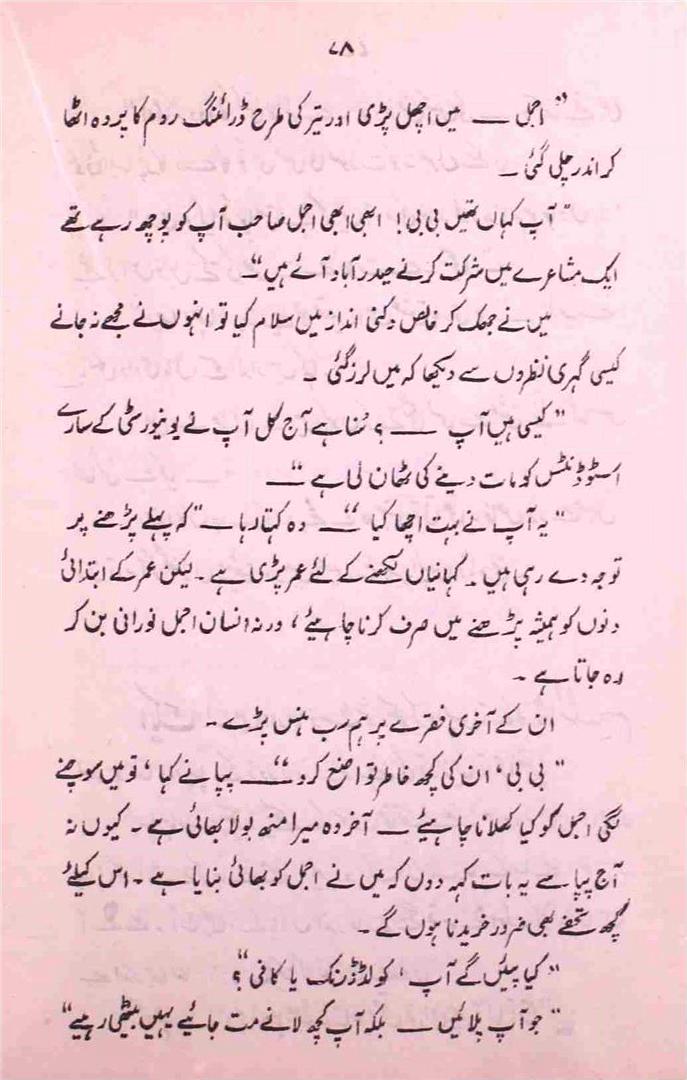 ۷۸
" اجمل ــــ میں اچھل پڑی اور تیر کی طرح ڈرائنگ روم کا پردہ اٹھا
کر اندر چلی گئی ۔
" آپ کہاں تھیں بی بی! ابھی ابھی اجمل صاحب آپ کو پوچھ رہے تھے
ایک مشاعرے میں شرکت کرنے حیدرآباد آئے ہیں "۔
میں نے جھک کر خالص دکنی انداز میں سلام کیا تو انہوں نے مجھے نہ جانے
کیسی گہری نظروں سے دیکھا کہ میں لرز گئی ۔
" کیسی ہیں آپ ــــ ؟ سُنا ہے آج کل آپ نے یونیورسٹی کے سارے
اسٹوڈنٹس کو مات دینے کی ٹھان لی ہے "ــــ
" یہ آپ نے بہت اچھا کیا "ــــ وہ کہتا رہا ــ " کہ پہلے پڑھنے پر
توجہ دے رہی ہیں ۔ کہانیاں لکھنے کے لئے عمر پڑی ہے ۔ لیکن عمر کے ابتدائی
دنوں کو ہمیشہ پڑھنے میں صرف کرنا چاہیئے ، ورنہ انسان اجمل نورانی بن کر
رہ جاتا ہے ۔
ان کے آخری فقرے پر ہم سب ہنس پڑے ۔
" بی بی ، ان کی کچھ خاطر تواضع کرو "ــــ پپا نے کہا ، تو میں سوچنے
لگی اجمل کو کیا کھلانا چاہیئے ــــ آخر وہ میرا منھ بولا بھائی ہے ۔ کیوں نہ
آج پپا سے یہ بات کہہ دوں کہ میں نے اجمل کو بھائی بنایا ہے ۔ اس کیلئے
کچھ تحفے بھی ضرور خریدنا ہوں گے ۔
" کیا پیئں گے آپ ، کولڈ ڈرنک یا کافی "؟
" جو آپ پلائیں ــــ بلکہ آپ کچھ لانے مت جائیے یہیں بیٹھی رہیے "